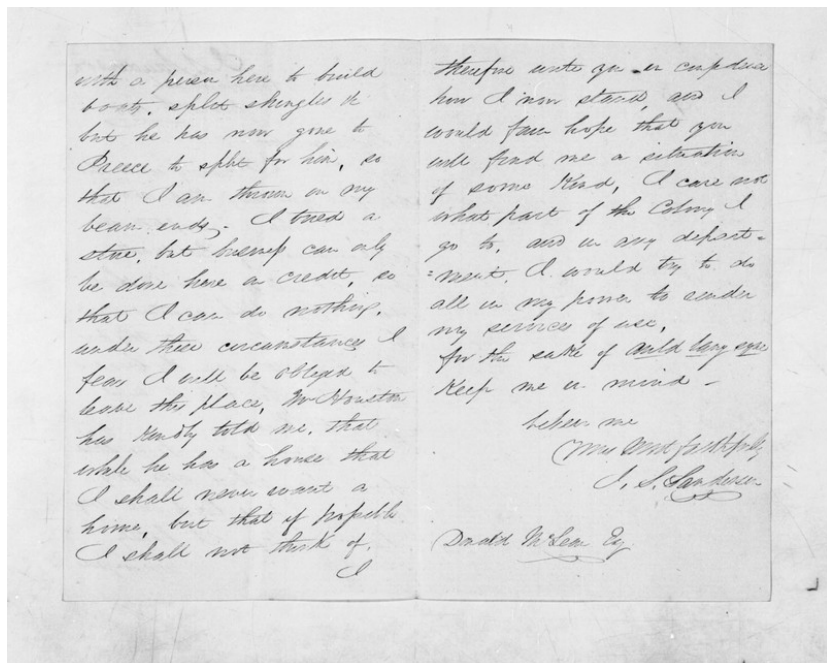 with a person here to build
boats, split shingles &c
but he has now gone to
Preece to split for him, so
that I am thrown on my
beam ends. I tried a
store, but business can only
be done here on credit, so
that I can do nothing,
under these circumstances I
fear I will be obliged to
leave this place, Mr Houston
has kindly told me, that
while he has a house that
I shall never want a
home, but that if possible
I shall not think of.
I
therefore write you in confidence
how I now stand, and I
would fain hope that you
will find me a situation
of some Kind, I care not
what part of the Colony I
go to, and in any depart=
=ment, I would try to do
all in my power to render
my services of use,
for the sake of auld lang syne
Keep me in mind -
believe me
Yours Most faithfully
J. S. Sanderson
Donald McLean Esq